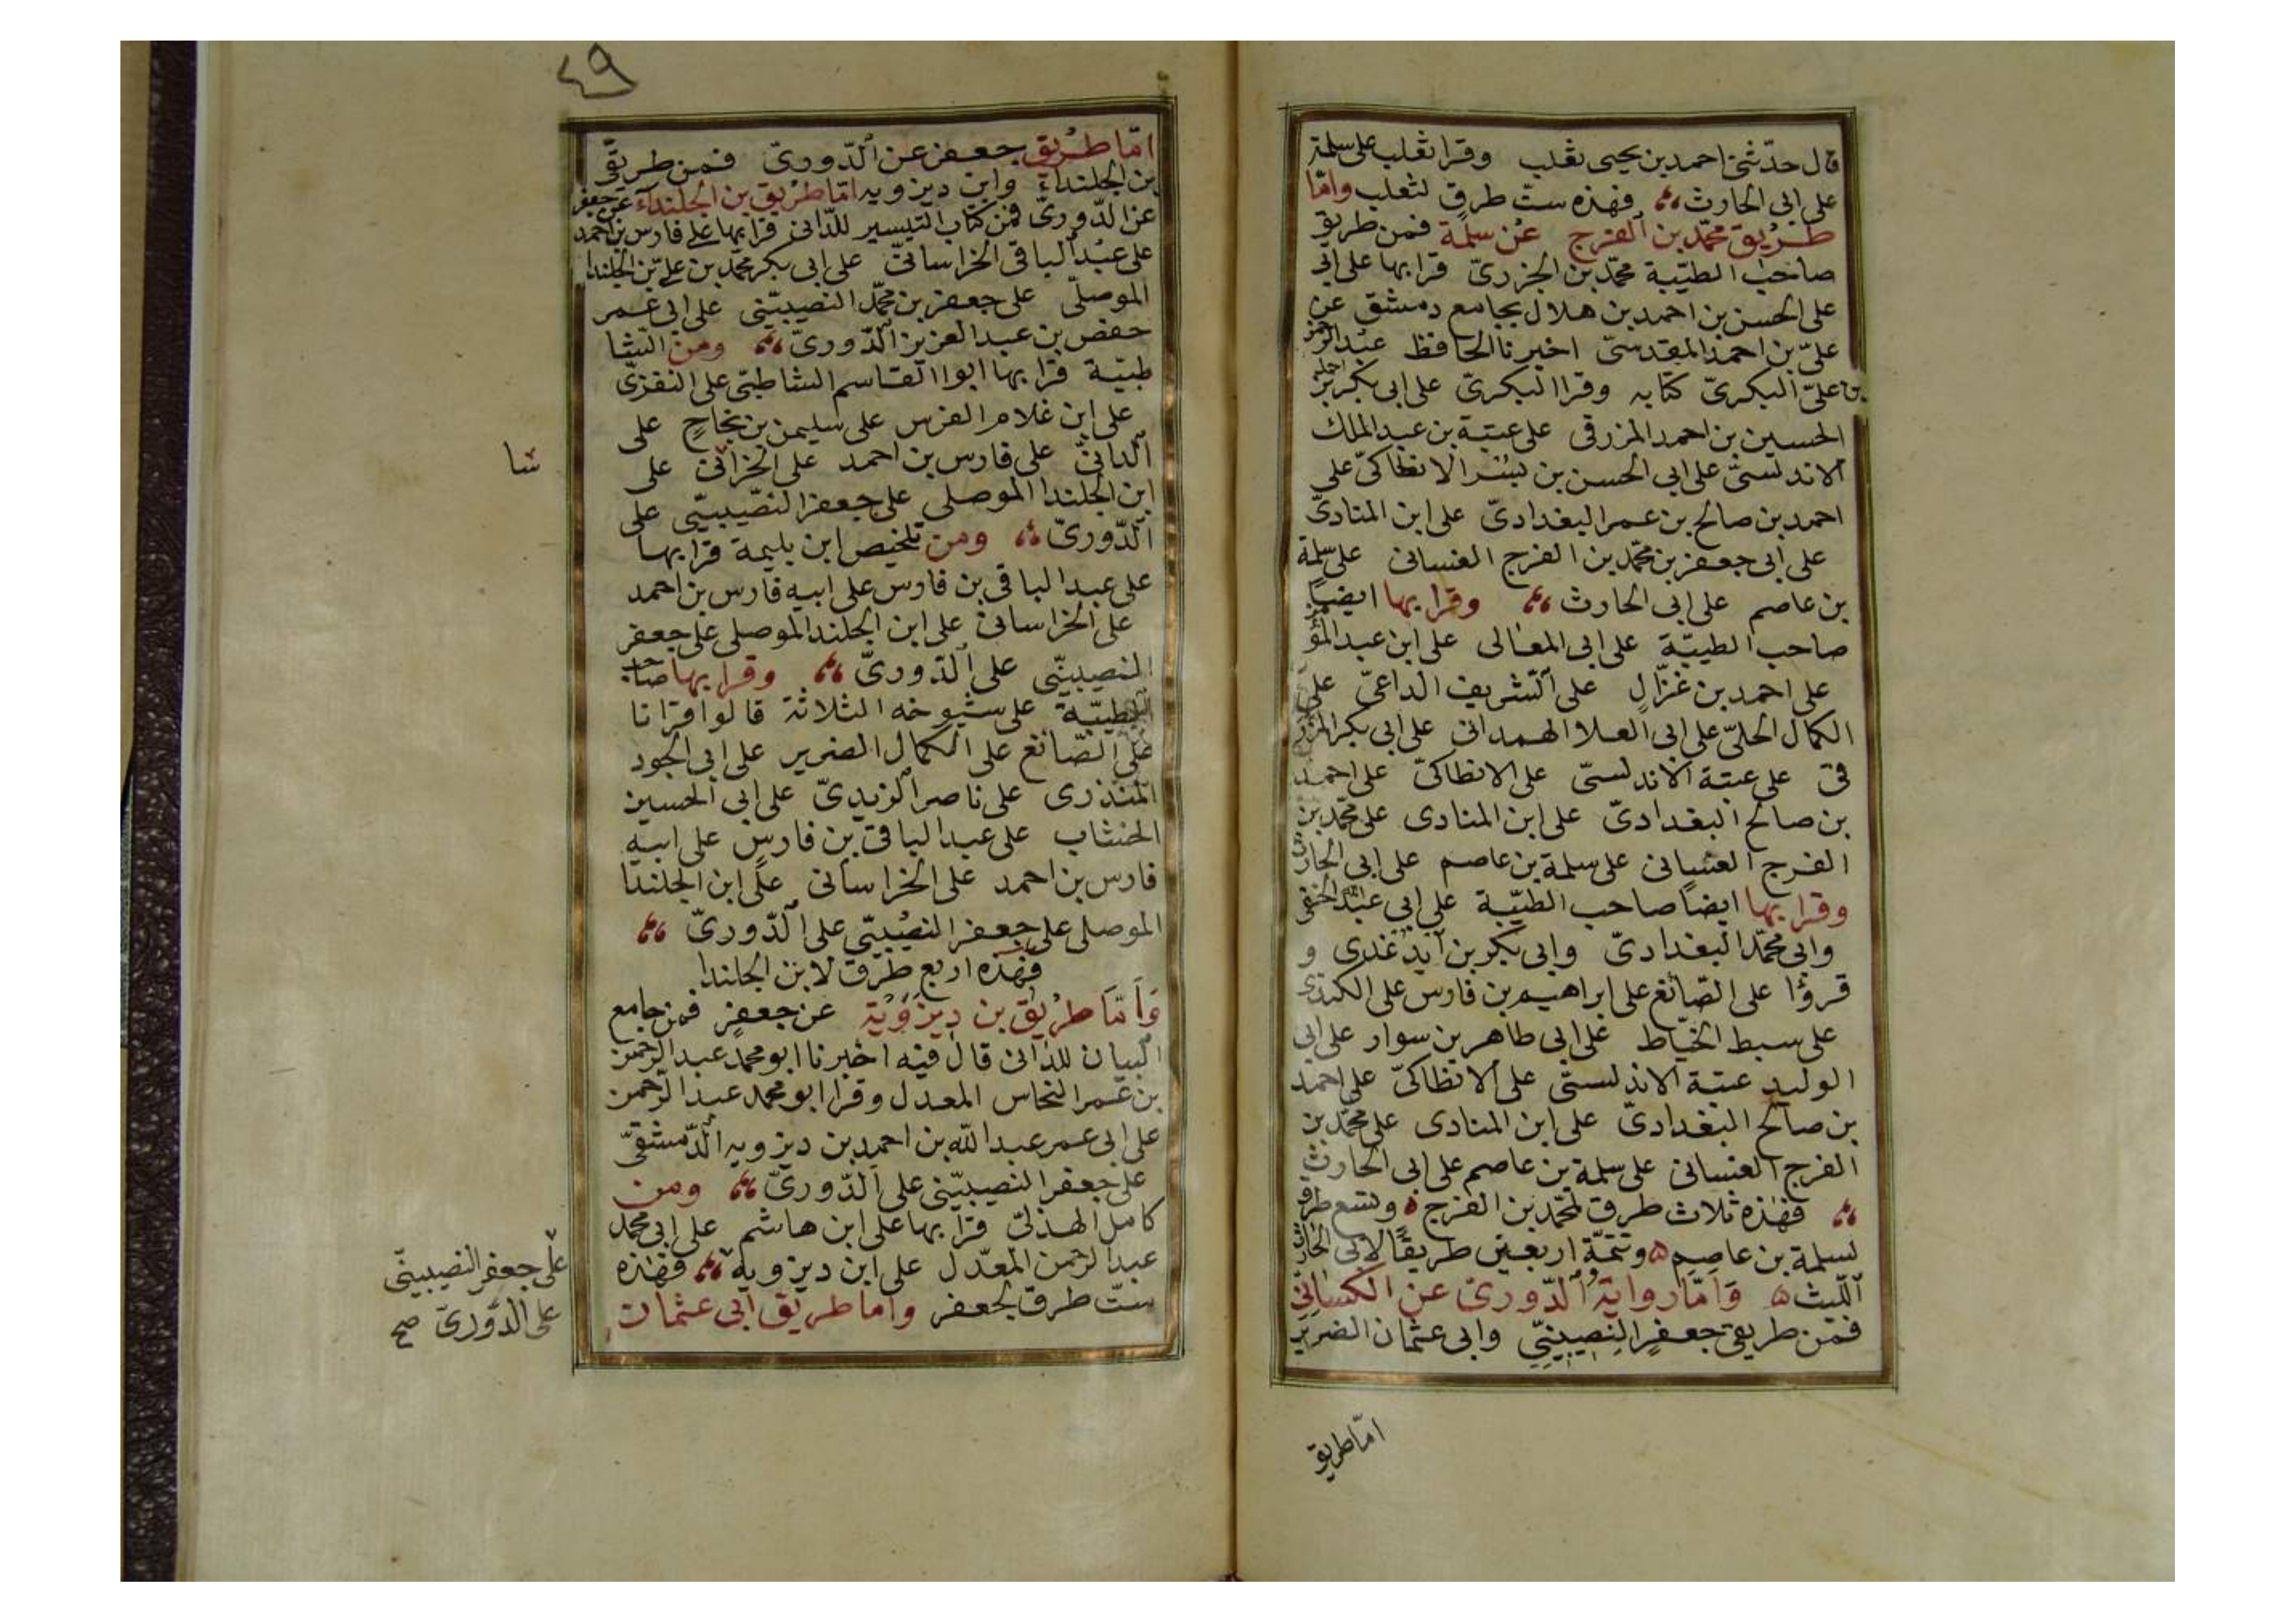 قال حدّثنى احمد بن يحيى ثعلب وقرا ثعلب على سلمة
على ابى الحارث فهذه ست طرق لثعلب وامّا
طريق محمّد بن الفرج عن سلمة فمن طريق
صاحب الطيّبة محمّد بن الجزرىّ قرا بها على ابى
على الحسن بن احمد بن هلال بجامع دمشق عن
علىّ بن احمد المقدسىّ اخبرنا الحافظ عبد الرحمن
بن علىّ البكرىّ كتابه وقرا البكرىّ على ابى بكر بن
الحسين بن احمد المزرقى على عبتة بن عبد الملك
الاندلسىّ على ابى الحسن بن بشر الانطاكىّ على
احمد بن صالح بن عمر البغدادىّ على ابن المنادىّ
على ابى جعفر بن محمّد بن الفرج الغسانى على سلمة
بن عاصم على ابى الحارث وقرا بها ايضًا
صاحب الطيبّة على ابى المعالى على ابن عبد المؤمن
على احمد بن غزّال على الشريف الداعىّ على
الكمال الحلىّ على ابى العلا الهمدانى على ابى بكر المزر
فى على عبتة الاندلسىّ على الانطاكىّ على احمد
بن صالح البغدادىّ على ابن المنادى على محمّد بن
الفرج الغسانى على سلمة بن عاصم على ابى الحارث
وقرا بها ايضًا صاحب الطيّبة على ابى عبد الله الحنفى
وابى محمّد البغدادىّ وابى بكر بن آيدغدى و
قرؤا على الصّائغ على ابراهيم بن فارس على الكندى
على سبط الخيّاط على ابى طاهر بن سوار على ابى
الوليد عبتة الاندلسىّ على الانطاكىّ على احمد
بن صالح البغدادىّ على ابن المنادى على محمّد بن
الفرج الغسانى على سلمة بن عاصم على ابى الحارث
فهذه ثلاث طرق لمحمّد بن الفرج وتسع طرق
لسلمة بن عاصم وتتمّة اربعين طريقًا لابى الحارث
اللّيث وَامّا رواية الدّورىّ عن الكسائىّ
فمن طريقى جعفر النصيبينّى وابى عثمان الضرير
امّا طريق
٤٩
امّا طريق جعفر عن الدّورىّ فمن طريقى
بن الجلنداء وابن ديزويه امّا طريق بن الجلنداء عن جعفر
عن الدّورىّ فمن كتاب التيسير للدّانى قرا بها على فارس بن احمد
على عبد الباقى الخراسانىّ على ابى بكر محمّد بن على بن الجلندا
الموصلّى على جعفر بن محمّد النصيبيّنى على ابى عمر
حفص بن عبد العزيز الدّورىّ ومن الشا
طبيّة قرا بها ابوا القاسم الشاطبّى على النفزىّ
على ابن غلام الفرس على سليمن بن نجاحٍ على
الدانىّ على فارس بن احمد على الخرانى على
شا
ابن الجلندا الموصلى على جعفر النصّيبيّى على
الدّورىّ ومن تلخيص ابن بليمة قرا بها
على عبد الباقى بن فارس على ابيه فارس بن احمد
على الخراسانى على ابن الجلندا الموصلى على جعفر
النصيبينّى على الدّورىّ وقرا بها صاحب
الطيّبة على شيوخه الثلاثة قالوا قرانا
على الصّائغ على الكمال الضرير على ابى الجود
المنذرى على ناصر الزيدىّ على ابى الحسين
الخشاب على عبد الباقى بن فارس على ابيه
فارس بن احمد على الخراسانى على ابن الجلندا
الموصلى على جعفر النصيبيّى على الدّورىّ
فهذه اربع طرق لابن الجلندا
وَاَمّا طريق بن ديزَوَيْة عن جعفر فمن جامع
البيان للدانى قال فيه اخبرنا ابو محمد عبد الرحمن
بن عمر النحاس المعدل وقرا ابو محمد عبد الرحمن
على ابى عمر عبد الله بن احمد بن ديزويه الدّمشقىّ
على جعفر النصيبيّنى على الدّورىّ ومن
كامل الهذلىّ قرا بها على ابن هاشم على ابى محمد
عبد الرحمن المعدّل على ابن ديزويه فهذه
على جعفر النصيبينّى
على الدّورىّ صح
ستّ طرق لجعفر واما طريق ابى عثمان